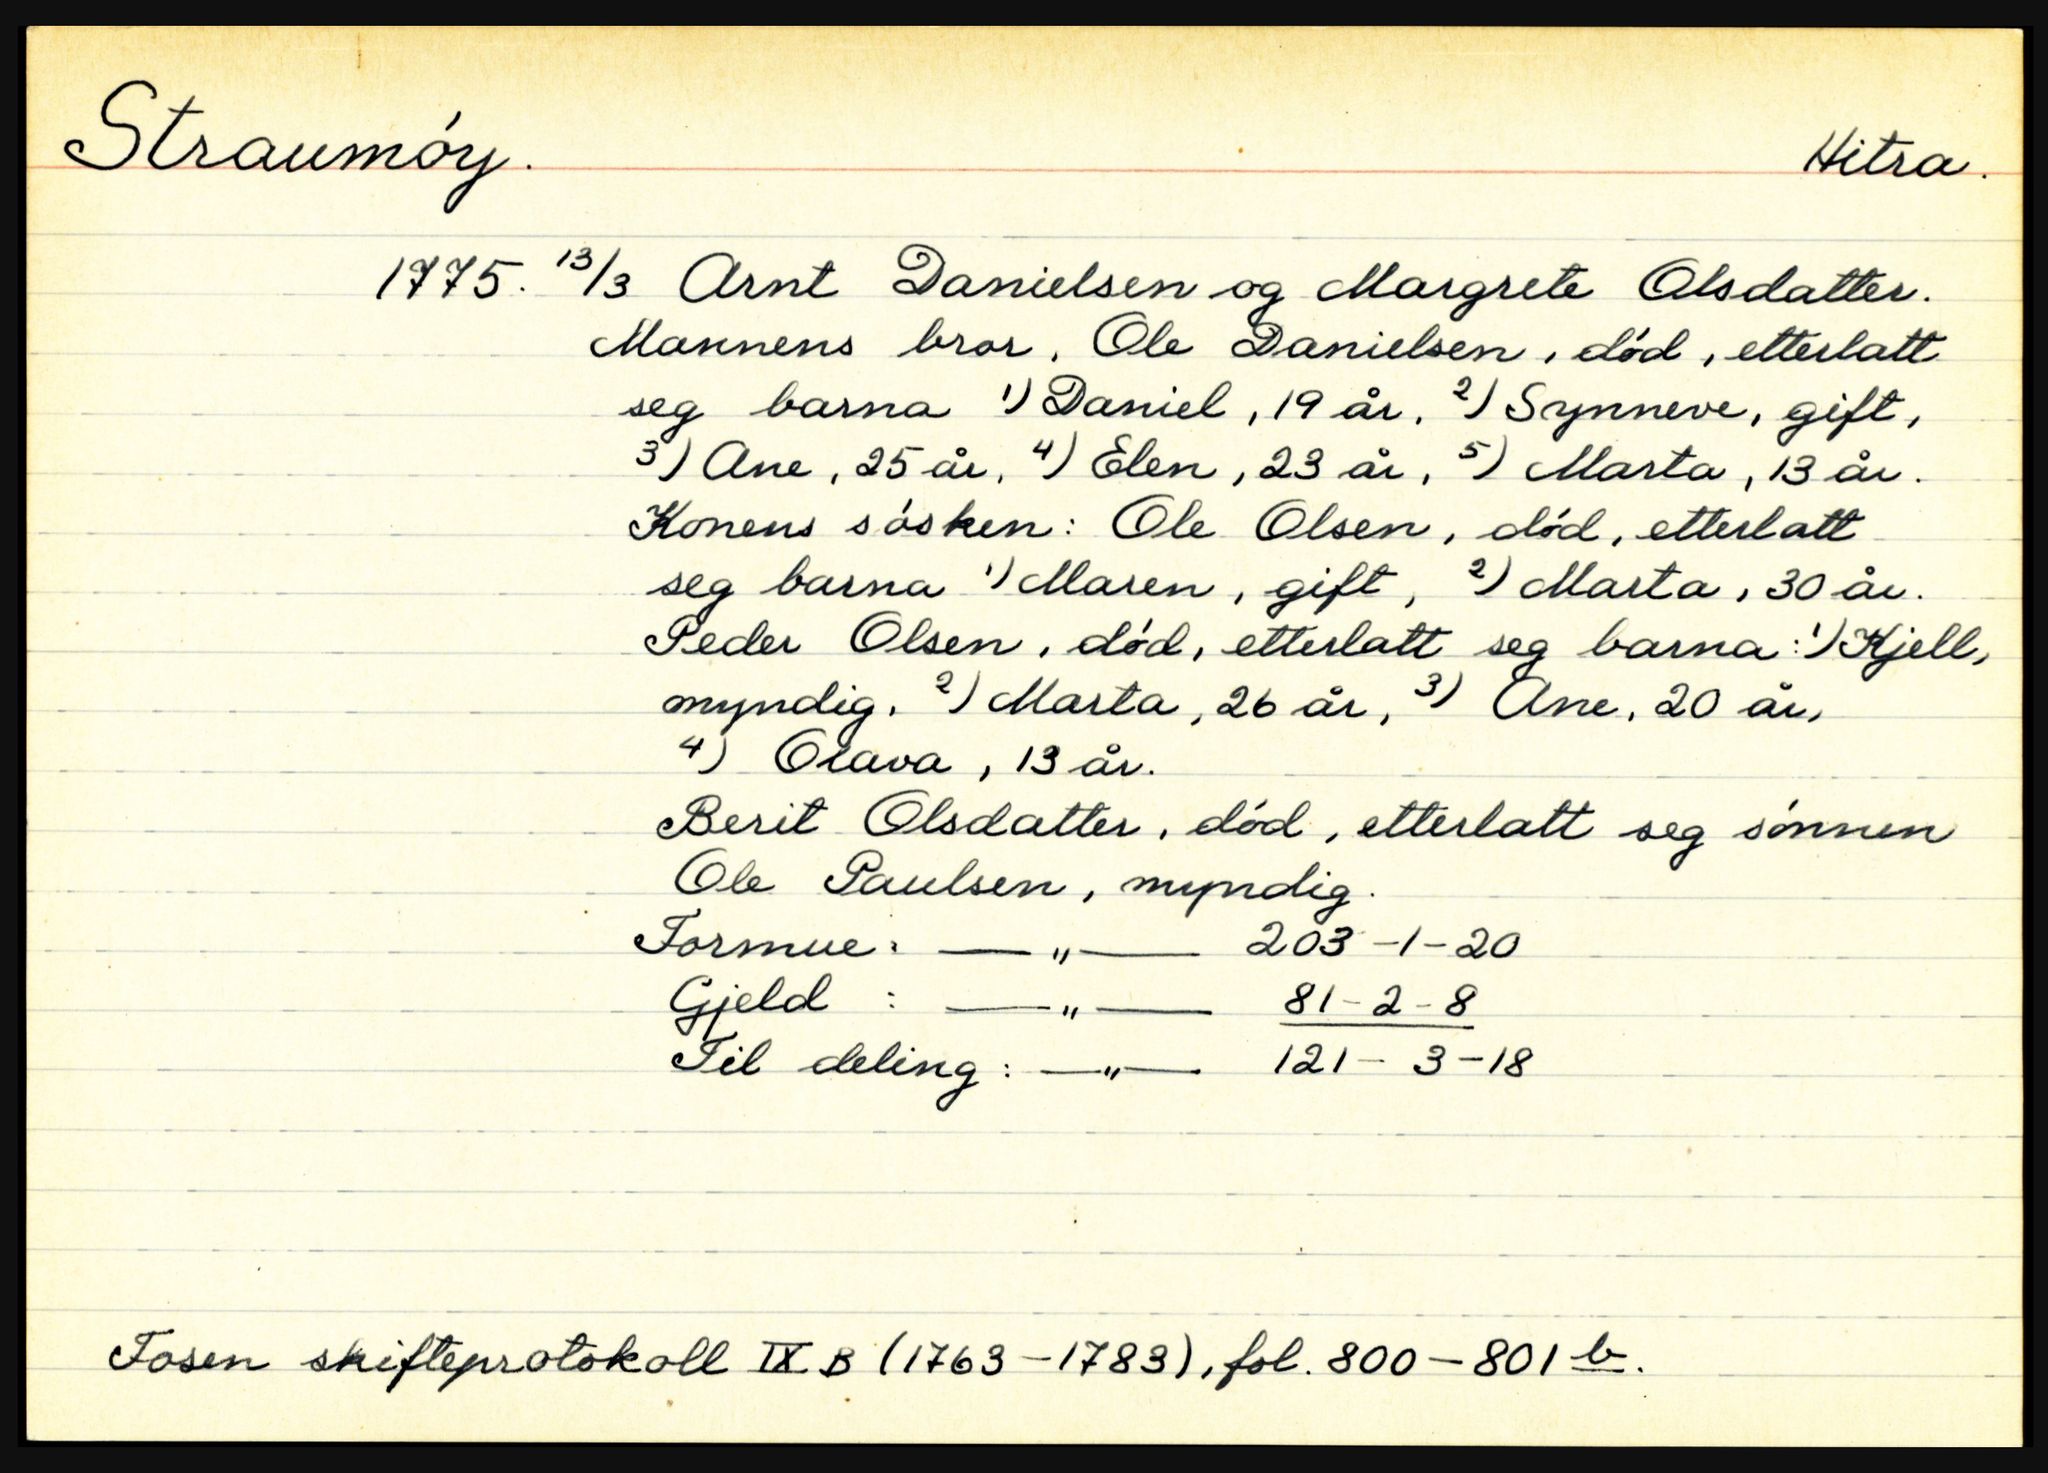 Straumóy. Hitra.
1775. 13/3 Arnt Danielsen og Margrete Olsdatter.
Mannens bror, Ole Danielsen, död, etterlatt
seg barna 1) Daniel, 19 år, 2) Synneve, gift,
3) Ane, 25 år, 4) Elen, 23 år, 5) Marta, 13 år.
Konens sósken: Ole Olsen, död, etterlatt
seg barna 1) Maren, gift, 2) Marta, 30 år.
Peder Olsen, död, etterlatt seg barna: 1) Kjell,
myndig, 2) Marta, 26 år, 3) Ane, 20 år,
4) Olava, 13 år.
Berit Olsdatter, död, etterlatt seg sónnen
Ole Paulsen, myndig.
Formue: — „ — 203-1-20
Gjeld : — „ — 81-2-8
Til deling: — „ — 121-3-18
Fosen skifteprotokoll IX B (1763-1783), fol. 800-801 b.